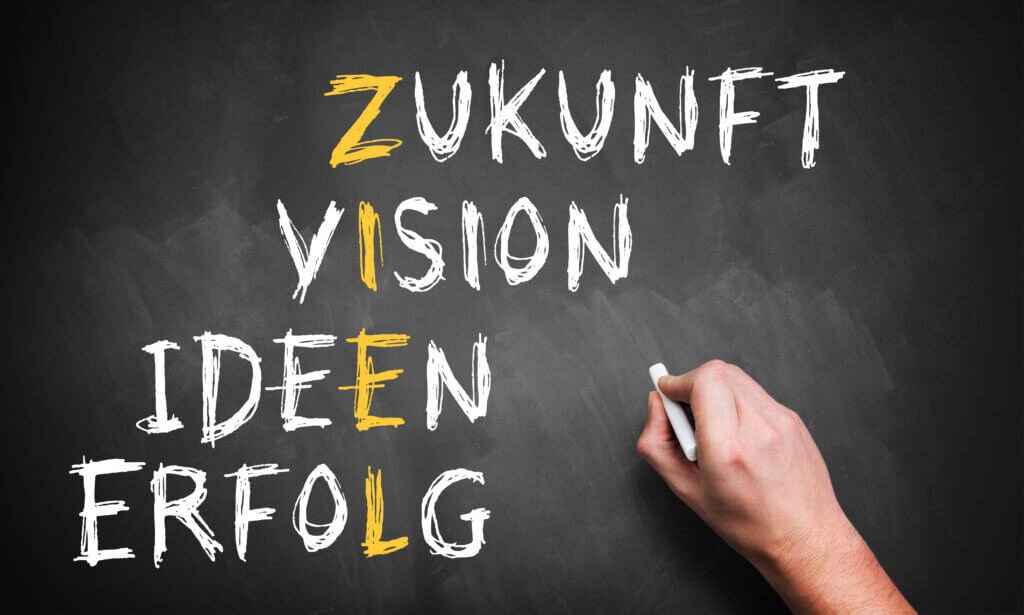 ZUKUNFT
VISION
IDEEN
ERFOLG